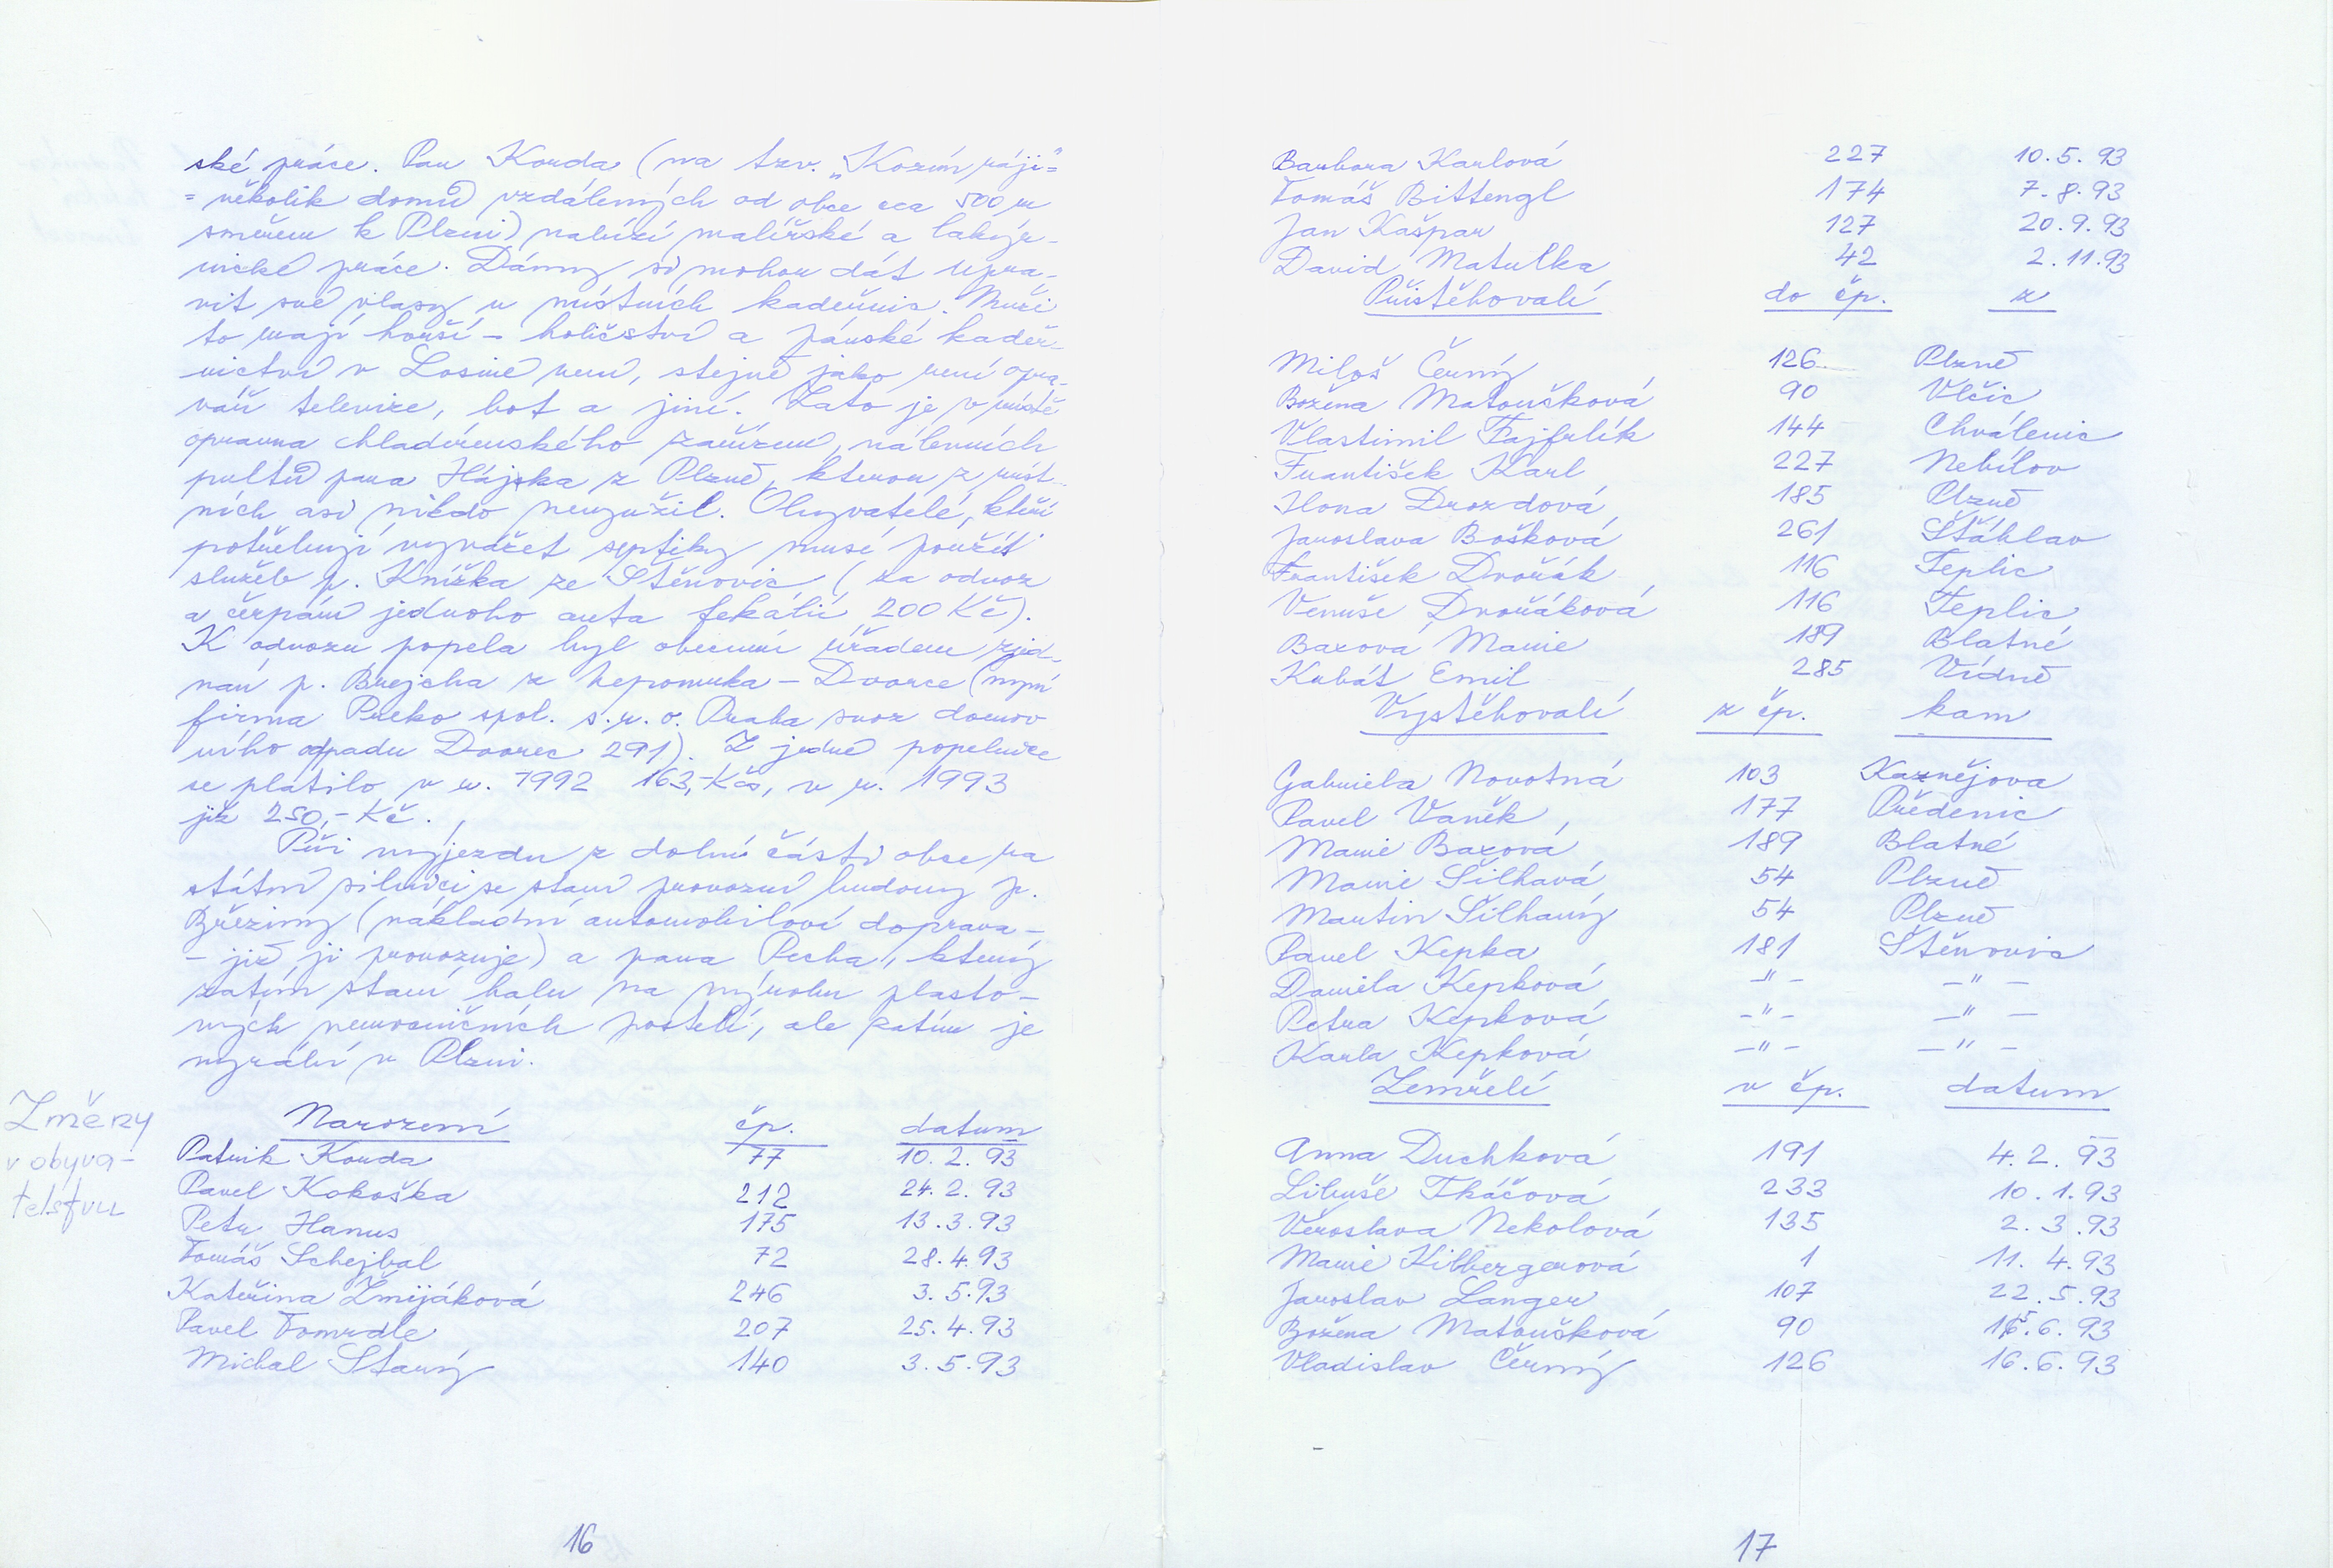 ské práce. Pan Korda (na tzv. „Kozím ráji“=
= několik domů vzdálených od obce cca 500 m
směrem k Plzni) nabízí malířské a lakýr-
nické práce. Dámy si mohou dát upra-
vit své vlasy u místních kadeřnic. Muži
to mají horší – holičství a pánské kadeř-
nictví v Losině není, stejně jako není opra-
vář televize, bot a jiní. Zato je v místě
opravna chladírenského zařízení, nálevních
pultů pana Hájka z Plzně, kterou z míst-
ních asi nikdo nevyužil. Obyvatelé, kteří
potřebují vyvážet septiky musí použít
služeb p. Knížka ze Štěnovic (za odvoz
a čerpání jednoho auta fekálií 200 Kč).
K odvozu popela byl obecním úřadem zjed-
nán p. Brejcha z Nepomuka – Dvorce (nyní
firma Preko spol. s.r.o. Praha svoz domov
ního odpadu Dvorec 291). Z jedné popelnice
se platilo v r. 1992 163,- Kčs, v r. 1993
již 250,- Kč.
Při výjezdu z dolní části obce na
státní silnici se staví provozní budovy p.
Březiny (nákladní automobilové doprava –
– již ji provozuje) a pana Pecha, který
zatím staví halu na výrobu plasto-
vých nemocničních postelí, ale zatím je
vyrábí v Plzni.
Změny
v obyva-
telstvu
Narození čp. datum
Patrik Korda 77 10. 2. 93
Pavel Kokoška 212 24. 2. 93
Petr Hanus 175 13. 3. 93
Tomáš Schejbal 72 28. 4. 93
Kateřina Žmijáková 246 3. 5. 93
Pavel Tomrdle 207 25. 4. 93
Michal Starý 140 3. 5. 93
16
Barbora Karlová 227 10. 5. 93
Tomáš Bittengl 174 7. 8. 93
Jan Kašpar 127 20. 9. 93
David Matulka 42 2. 11. 93
Přistěhovalí do čp. z
Miloš Černý 126 Plzně
Božena Matoušková 90 Vlčic
Vlastimil Fajfrlík 144 Chválenic
František Karl 227 Nebílov
Ilona Drozdová 185 Plzně
Jaroslava Bošková 261 Šťáhlav
František Dvořák 116 Teplic
Venuše Dvořáková 116 Teplic
Baxová Marie 189 Blatné
Kubát Emil 285 Vídně
Vystěhovalí z čp. kam
Gabriela Novotná 103 Kaznějova
Pavel Vaněk 177 Předenic
Marie Baxová 189 Blatné
Marie Šilhavá 54 Plzně
Martin Šilhavý 54 Plzně
Pavel Kepka 181 Štěnovic
Daniela Kepková –"– –"–
Petra Kepková –"– –"–
Karla Kepková –"– –"–
Zemřelí v čp. datum
Anna Duchková 191 4. 2. 93
Libuše Tkáčová 233 10. 1. 93
Věroslava Nekolová 135 2. 3. 93
Marie Kilbergerová 1 11. 4. 93
Jaroslav Langer 107 22. 5. 93
Božena Matoušková 90 6. 93
Vladislav Černý 126 16. 6. 93
17